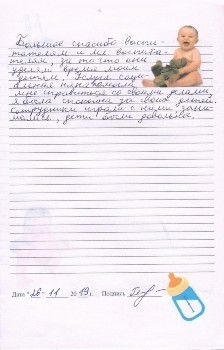 Большое спасибо воспи-
тателям и мл. воспита-
телям, за то что они
уделяли время моим
детям. Услуга соци-
альная няня помогла
мне справиться со своими делами,
я была спокойна за своих детей.
Сотрудники играли с ними, зани-
мались, дети были довольны.
Дата "26" 11 2019 г. Подпись